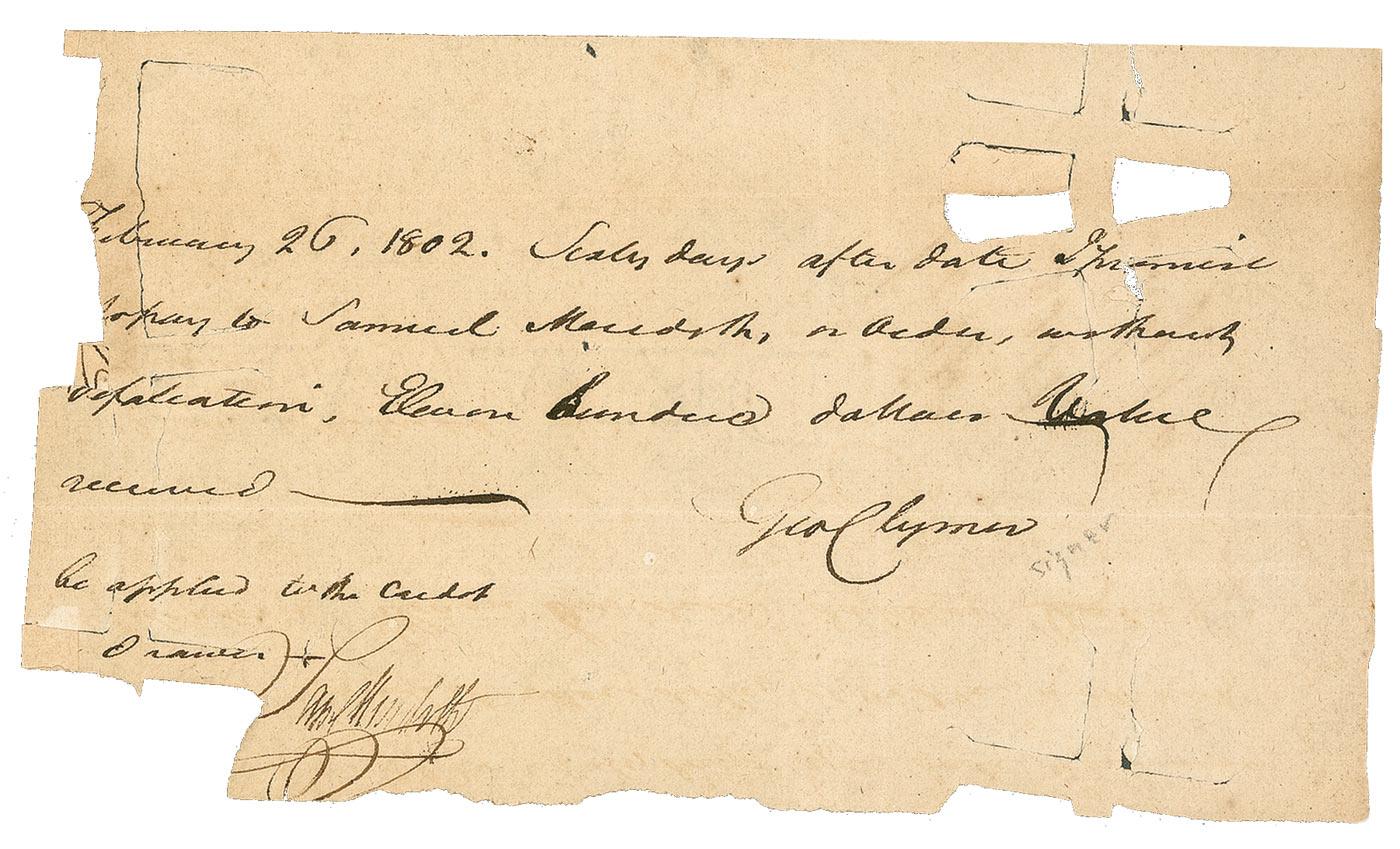 February 26, 1802. Sixty days after date I promise
to pay to Samuel Meredith, or Order, without
defalcation, Eleven hundred dollars Value
received
Geo Clymer
signer
be applied to the Credit
Drawer
Sam Meredith